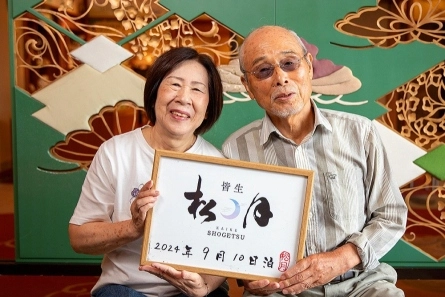 皆生
松月
KAIKE
SHOGETSU
2024年9月10日泊
松月